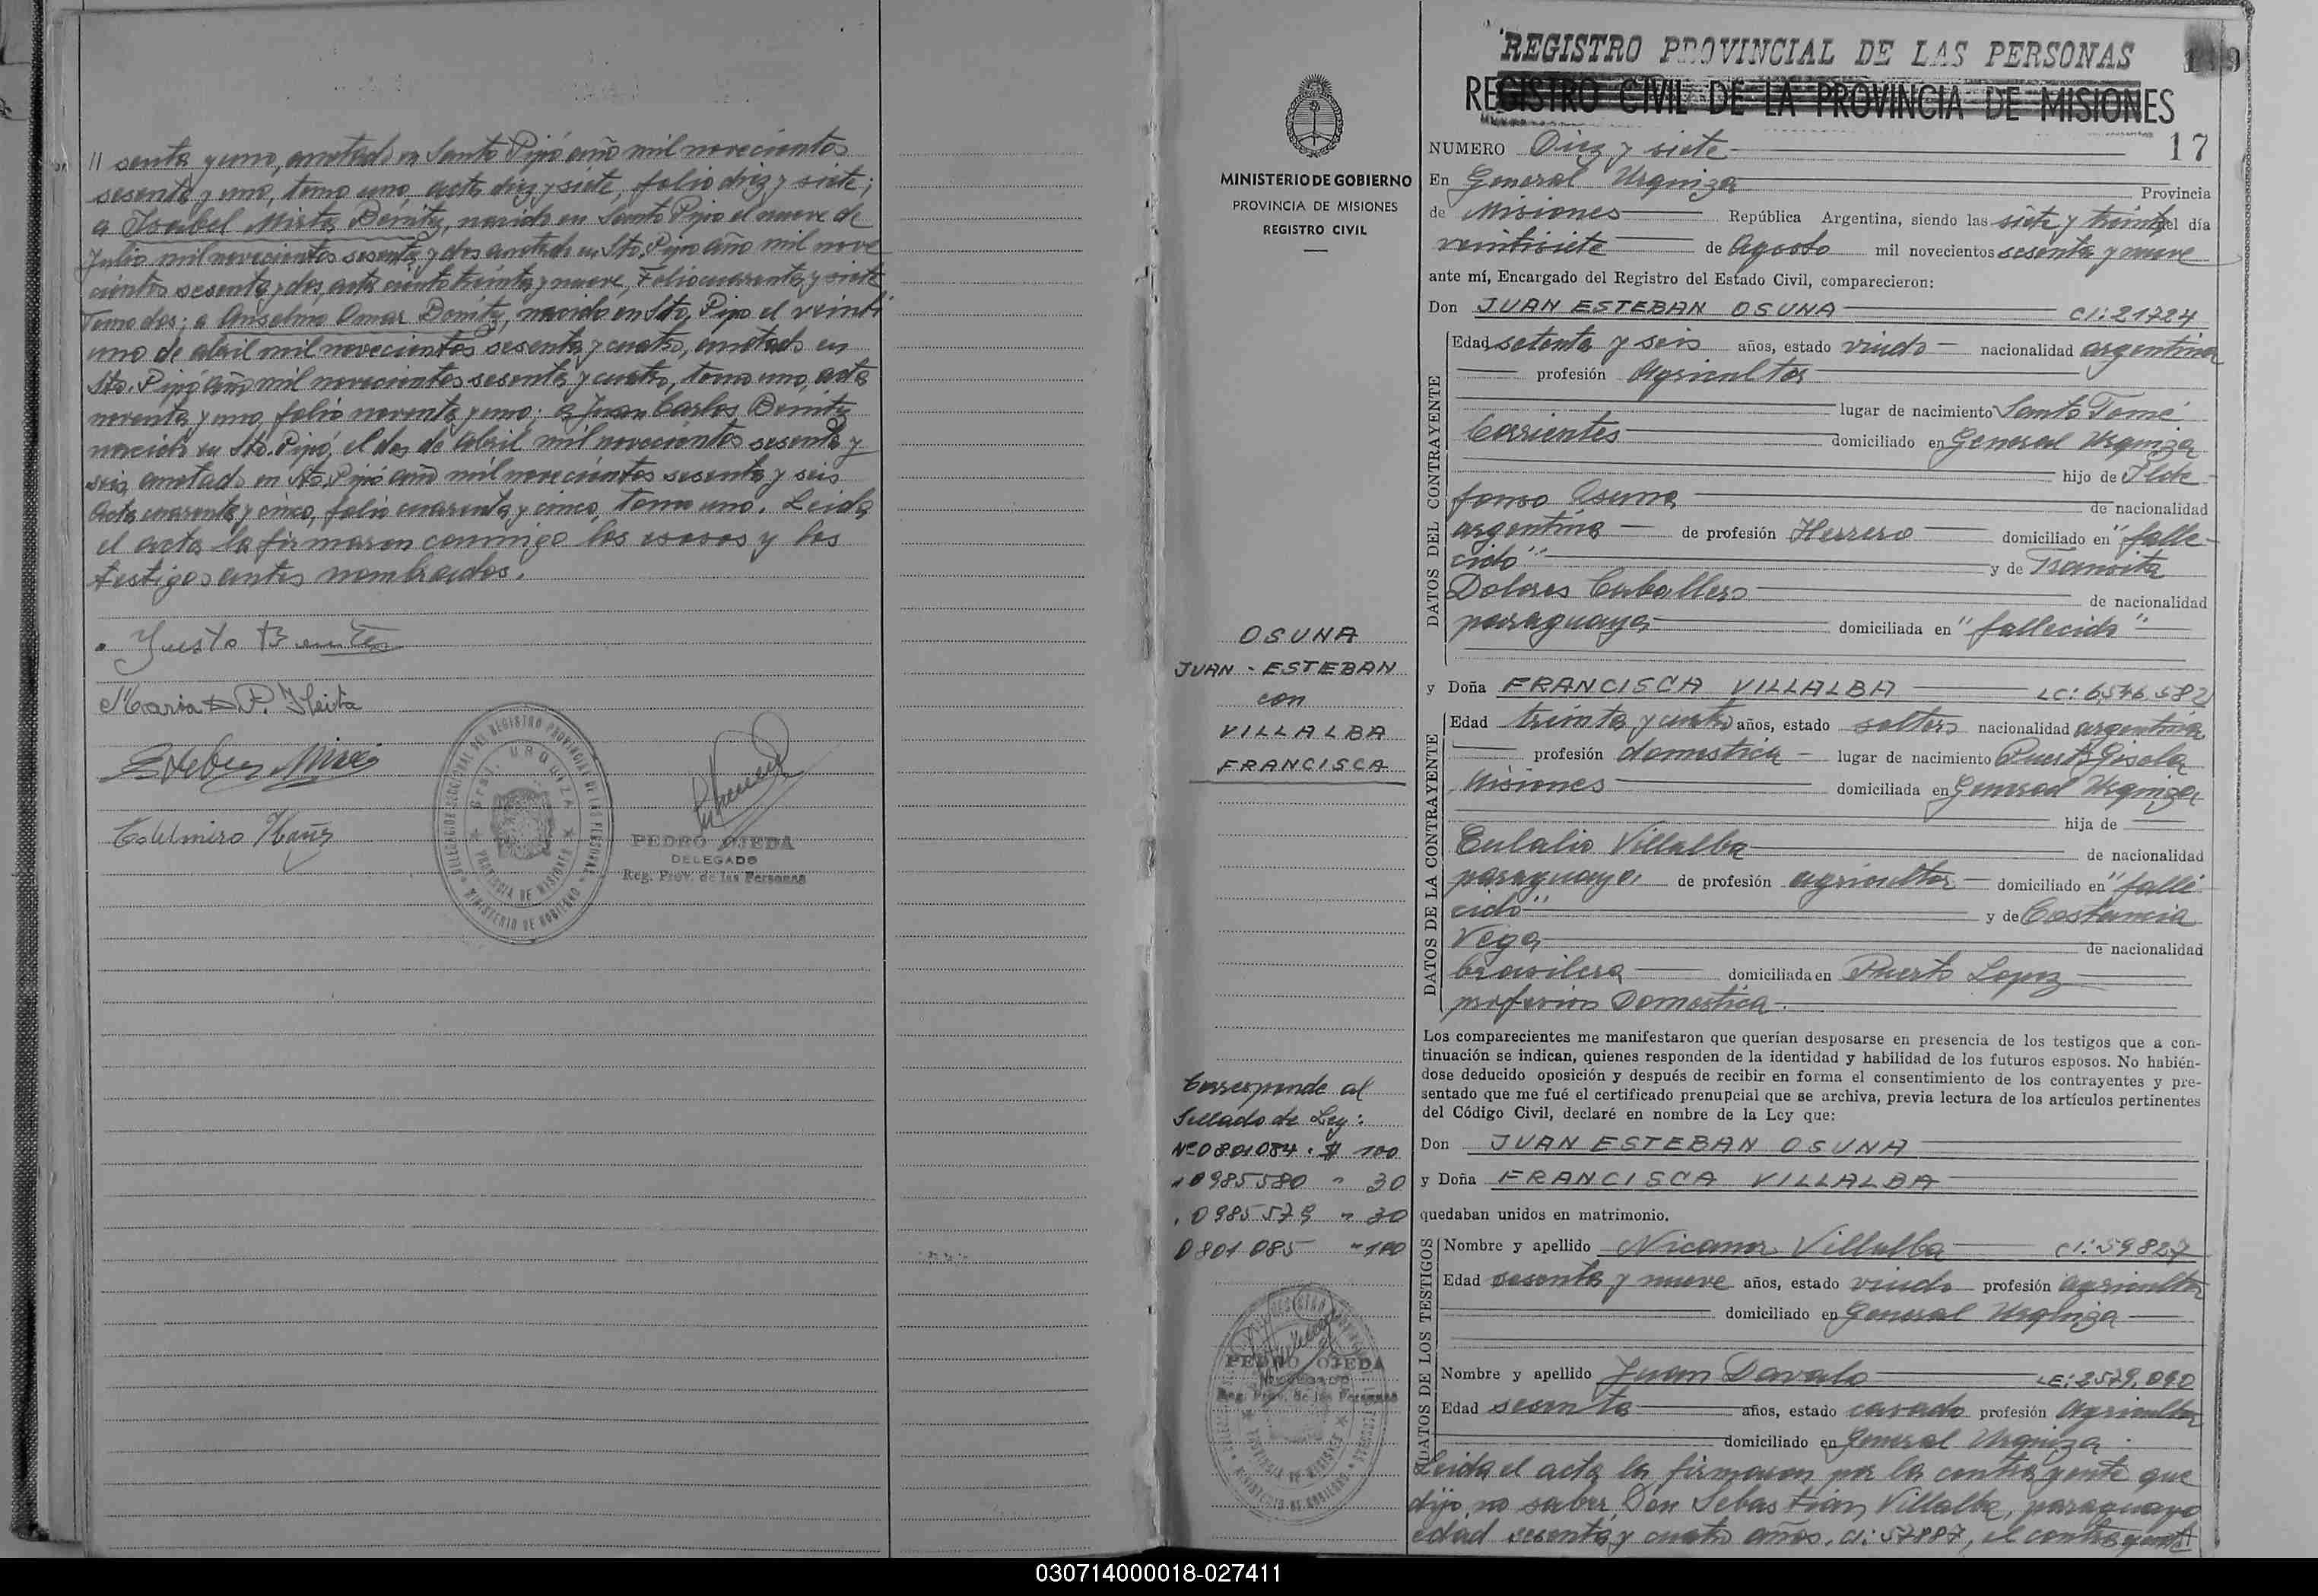 // senta y uno, anotado en Santo Pipó año mil novecientos
sesenta y uno, tomo uno, acta diez y siete, folio diez y siete;
a Isabel Mirta Benitz, nacida en Santo Pipo el nueve de
Julio mil novecientos sesenta y dos anotada en Sto. Pipo año mil nove
cientos sesenta y dos, acta ciento treinta y nueve, Folio cuarenta y siete
Tomo dos; a Anselmo Omar Benitz, nacido en Sto. Pipo el veinti
uno de abril mil novecientos sesenta y cuatro, anotado en
Sto. Pipó año mil novecientos sesenta y cuatro, tomo uno, acta
noventa y uno, folio noventa y uno; a Juan Carlos Benitz
nacido en Sto. Pipó, el dos de Abril mil novecientos sesenta y
seis, anotado en Sto. Pipó año mil novecientos sesenta y seis
Acta cuarenta y cinco, folio cuarenta y cinco, tomo uno. Leida
el acta la firmaron conmigo los esosos y los
testigos antes nombrados.
Justo
Maria
PEDRO OJEDA
DELEGADO
Reg. Prov. de las Personas
DELEGACION SECCIONAL DEL REGISTRO PROVINCIAL DE LAS PERSONAS
Gral. URQUIZA
PROVINCIA DE MISIONES
MINISTERIO DE GOBIERNO
MINISTERIO DE GOBIERNO
PROVINCIA DE MISIONES
REGISTRO CIVIL
OSUNA
JUAN - ESTEBAN
con
VILLALBA
FRANCISCA
Corresponde al
Sellado de Ley:
Nº 0801084 . $ 100
" 0985580 " 30
" 0985579 " 30
0801085 " 100
PEDRO OJEDA
Reg. Prov. de las Personas
REGISTRO PROVINCIAL DE LAS PERSONAS
REGISTRO CIVIL DE LA PROVINCIA DE MISIONES
NUMERO Diez y siete 17
En General Urquiza Provincia
de Misiones República Argentina, siendo las siete y treinta del día
veintisiete de Agosto mil novecientos sesenta y nueve
ante mí, Encargado del Registro del Estado Civil, comparecieron:
Don JUAN ESTEBAN OSUNA CI: 21724
DATOS DEL CONTRAYENTE
Edad setenta y seis años, estado viudo nacionalidad argentina
profesión Agricultor
lugar de nacimiento Santo Tomé
Corrientes domiciliado en General Urquiza
hijo de Ilde
fonso Osuna de nacionalidad
argentina de profesión Herrero domiciliado en "falle-
cido" y de Transita
Dolores Caballero de nacionalidad
paraguaya domiciliada en "fallecida"
y Doña FRANCISCA VILLALBA LC: 6,546.582
DATOS DE LA CONTRAYENTE
Edad treinta y cuatro años, estado soltera nacionalidad argentina
profesión domestica lugar de nacimiento Puerto Gisela
Misiones domiciliada en General Urquiza
hija de
Eulalio Villalba de nacionalidad
paraguaya de profesión agricultor domiciliado en "falle
cido" y de Costancia
Vega de nacionalidad
brasilera domiciliada en Puerto Lopez
profesion Domestica.
Los comparecientes me manifestaron que querían desposarse en presencia de los testigos que a con-
tinuación se indican, quienes responden de la identidad y habilidad de los futuros esposos. No habién-
dose deducido oposición y después de recibir en forma el consentimiento de los contrayentes y pre-
sentado que me fué el certificado prenupcial que se archiva, previa lectura de los artículos pertinentes
del Código Civil, declaré en nombre de la Ley que:
Don JUAN ESTEBAN OSUNA
y Doña FRANCISCA VILLALBA
quedaban unidos en matrimonio.
DATOS DE LOS TESTIGOS
Nombre y apellido Nicanor Villalba CI: 59827
Edad sesenta y nueve años, estado viudo profesión agricultor
domiciliado en General Urquiza
Nombre y apellido Juan Davalo LE: 3579.090
Edad sesenta años, estado casado profesión Agricultor
domiciliado en General Urquiza.
Leida el acta la firmaron por la contrayente que
dijo no saber Don Sebastian Villalba, paraguayo
edad sesenta y cuatro años, CI: 57887, el contrayente
030714000018-027411